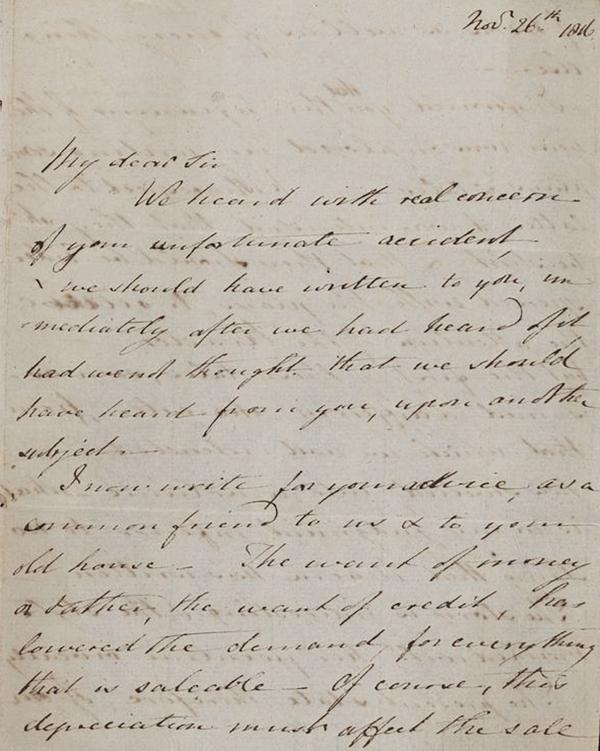 Nov.r 26th 1816
My dear Sir
We heard with real concern
of your unfortunate accident,
& we should have written to you, im
mediately after we had heard of it
had we not thought that we should
have heard from you, upon another
subject —
I now write for your advice, as a
common friend to us & to your
old house — The want of money
or rather, the want of credit, has
lowered the demand for everything
that is saleable — Of course, this
depreciation must affect the sale